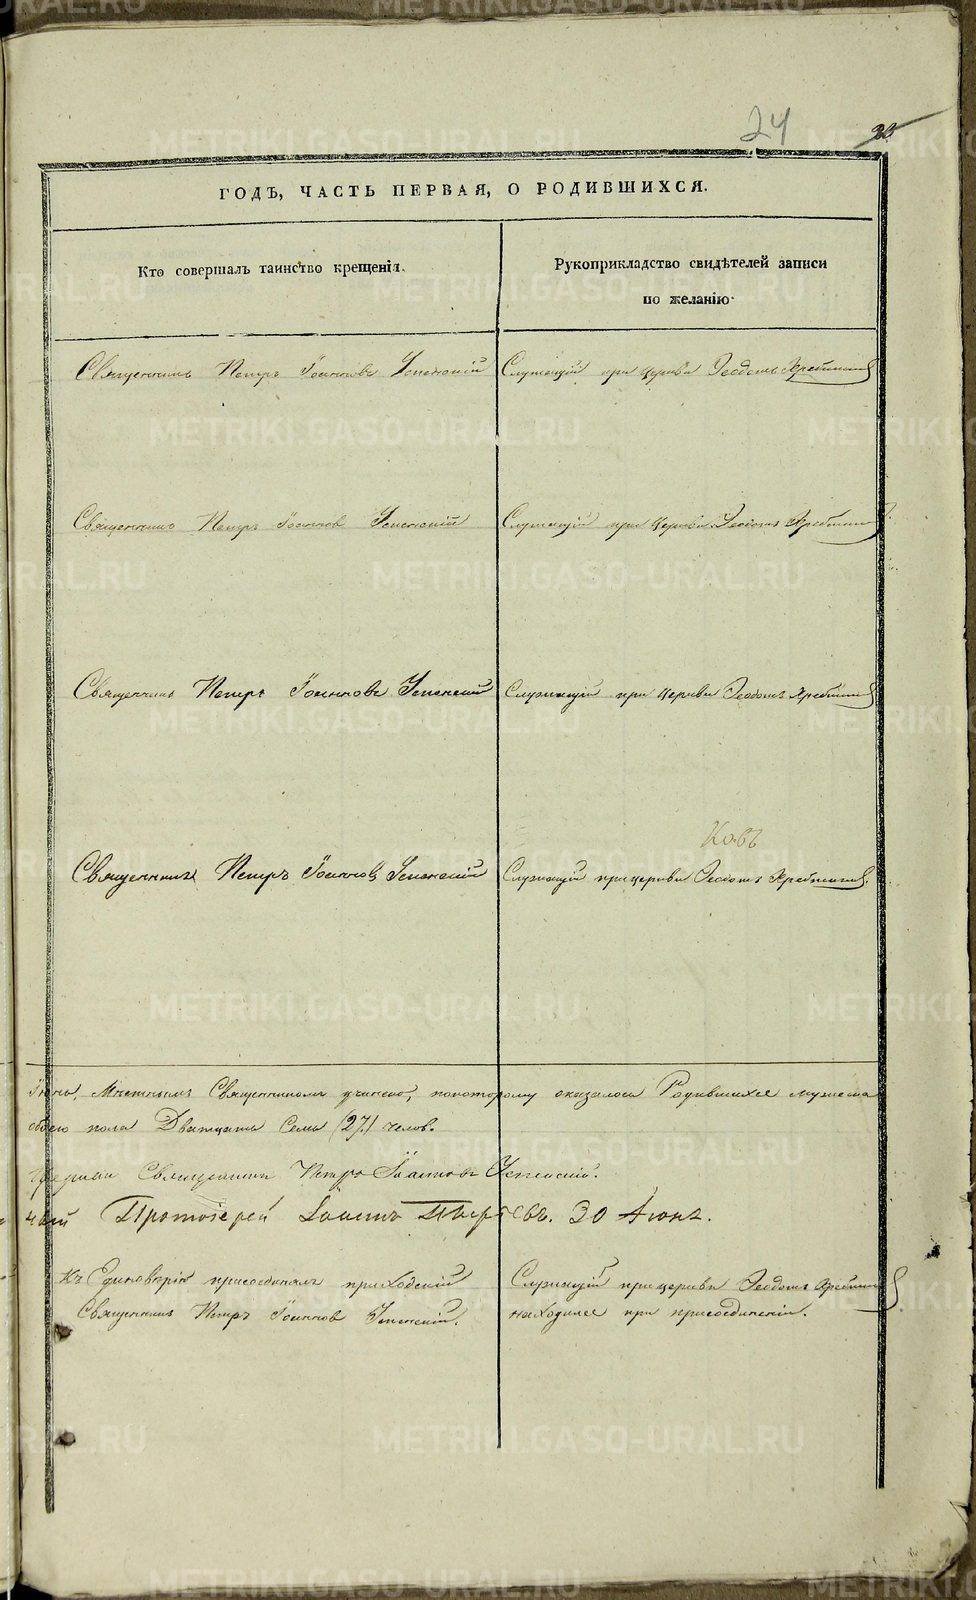 24
23
ГОДЪ, ЧАСТЬ ПЕРВАЯ, О РОДИВШИХСЯ.
Кто совершалъ таинство крещенія.
Рукоприкладство свидѣтелей записи
по желанію.
Священникъ Петръ Іоанновъ Успенскій
Служащій при церкви Ѳеодотъ
Священникъ Петръ Іоанновъ Успенскій
Служащій при церкви Ѳеодотъ
Священникъ Петръ Іоанновъ Успенскій
Служащій при церкви Ѳеодотъ
Священникъ Петръ Іоанновъ Успенскій
Служащій при церкви Ѳеодотъ
Священникомъ учинено, по которому оказалось Родившихся мужеска
обоего пола Двадцать Семь (27) челов.
Священникъ Петръ Іоанновъ Успенскій.
Протоіерей Іоаннъ 30 Іюня.
Къ Единовѣрію присоединялъ приходскій
Священникъ Петръ Іоанновъ Успенскій.
Служащій при церкви Ѳеодотъ
находился при присоединеніи.
METRIKI.GASO-URAL.RU